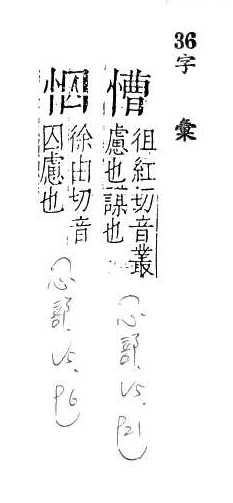 36字彙
慒
徂紅切音叢
慮也謀也
(心部. V5. P21)
徐由切音
囚慮也
(心部. V5. P6)